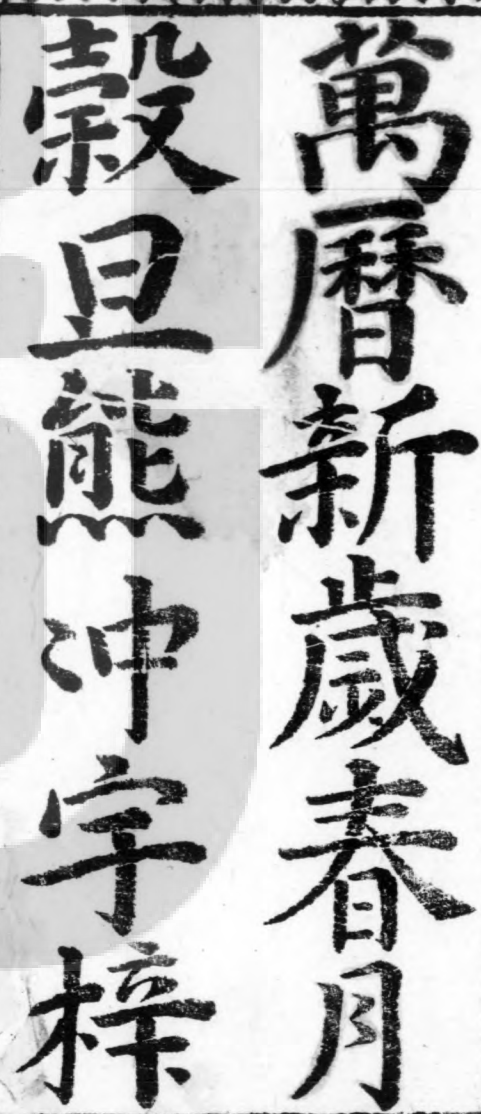 萬曆新歲春月
穀旦熊冲宇梓